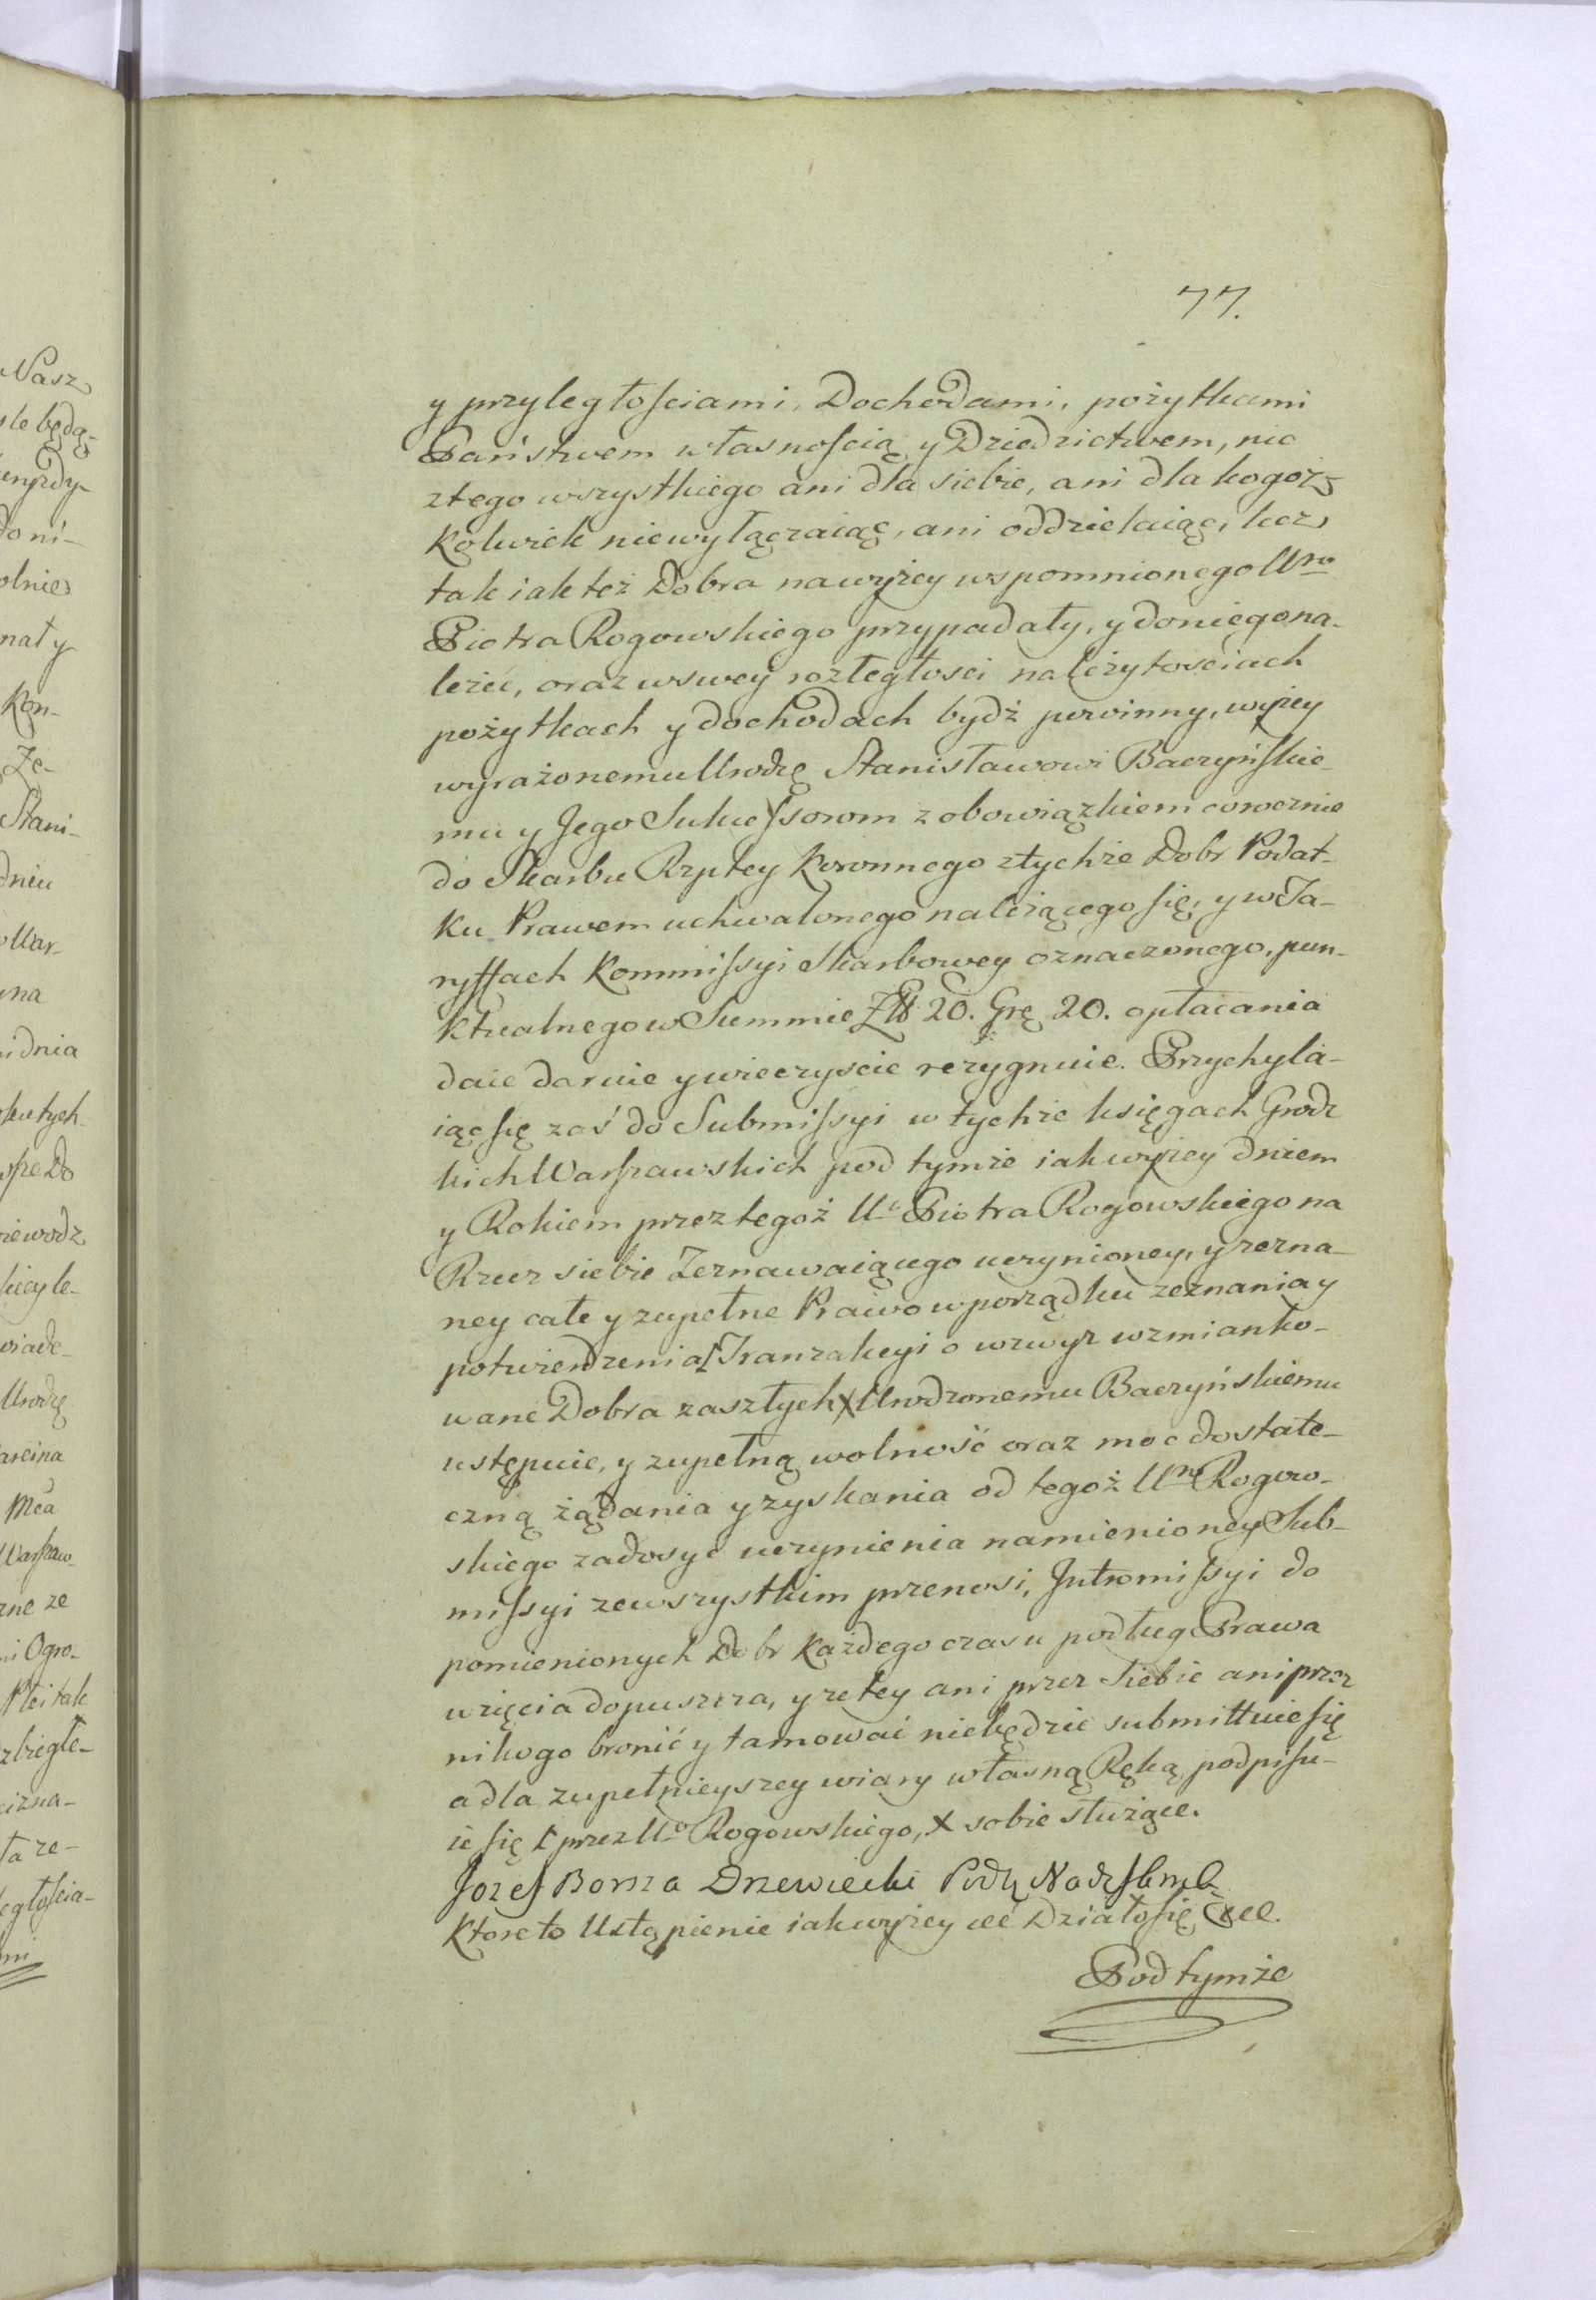 77.
y przyległościami, Dochodami, pożytkami
Państwem własnością y Dziedzictwem, nic
ztego wszystkiego ani dla siebie, ani dla kogoż
kolwiek niewyłączaiąc, ani oddzielaiąc, lecz
tak iak też Dobra na wyżey wspomnionego Uro
Piotra Rogowskiego przypadały, y doniego na-
leżeć, oraz w swey rozległości należytościach
pożytkach y dochodach bydź powinny, wyżey
wyrażonemu Urodzę Stanisławowi Baczyńskie-
mu y Jego Sukcessorom z obowiązkiem corocznie
do Skarbu Rzptey Koronnego ztychże Dobr Podat-
ku Prawem uchwalonego należącego się, y w Ta-
ryffach Kommissyi Skarbowey oznaczonego, pun-
ktualnego w Summie Zł 20. Grę 20. opłacania
daie daruie y wieczyscie rezygnuie. Przychyla-
iąc się zaś do Submissyi w tychże księgach Grodz
kich Warszawskich pod tymże iak wyżey dniem
y Rokiem przez tegoż U Piotra Rogowskiego na
Rzecz siebie Zeznawaiącego uczynioney, y zezna-
ney całe y zupełne Prawo w porządku zeznania y
potwierdzenia Tranzakcyi o wzwyż wzmianko-
wane Dobra zaszłych X Urodzonemu Baczyńskiemu
ustępuie, y zupełną wolność oraz moc dostate-
czną żądania y zyskania od tegoż Uro Rogow-
skiego zadosyć uczynienia namienioney Sub-
missyi zewszystkim przenosi, Intromissyi do
pomienionych Dobr każdego czasu podług Prawa
wzięcia dopuszcza, y zetey ani przez siebie ani przez
nikogo bronić y tamować niebędzie submittuie się
a dla zupełnieyszey wiary własną Ręką podpisu-
ie się X przez Uo Rogowskiego, X sobie służące.
Jozef Borsza Drzewiecki
Ktore to Ustąpienie iak wyżey etc Działo się etc.
Pod tymże
Nasz
Kon-
Ze-
Stani-
dniu
War-
na
dnia
Urodzę
Mca
Warszaw-
Ogro-